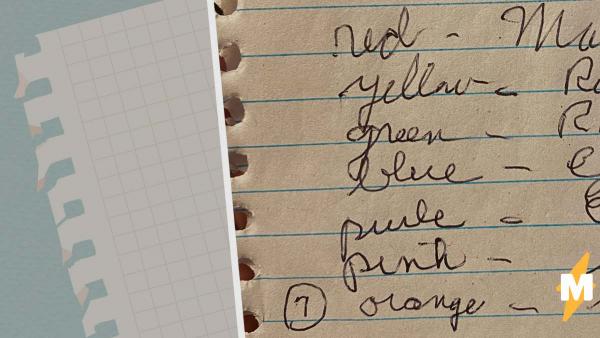 red - Ma
yellow - Ro
green - R
blue -
purle -
pink -
7 orange -
M